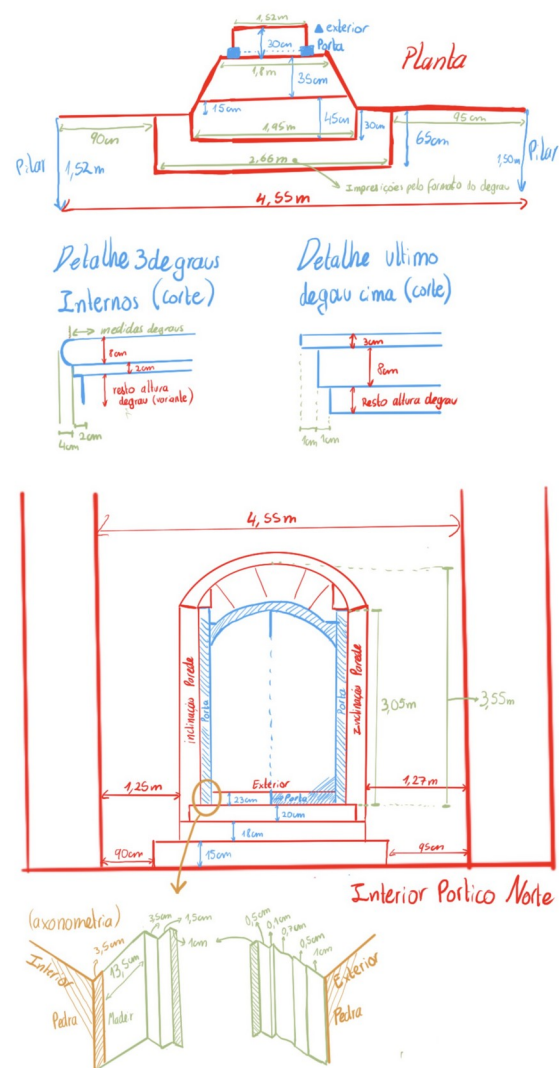 1,52m
▲ exterior
30cm
Porta
Planta
1,8m
35cm
15cm
45cm
1,95m
30cm
90cm
95cm
65cm
Pilar
1,52m
2,66m
1,50m
Pilar
Imprecições pelo formato do degrau
4,55m
Detalhe 3 degraus
Internos (corte)
medidas degraus
8cm
2cm
resto altura
degrau (variante)
2cm
4cm
Detalhe ultimo
degau cima (corte)
3cm
8cm
Resto altura degrau
1cm 1cm
4,55m
inclinação Parede
Porta
Porta
Inclinação Parede
3,05m
3,55m
1,25m
Exterior
1,27m
23cm
Porta
20cm
18cm
90cm
15cm
95cm
Interior Portico Norte
(axonometria)
3,5cm
13,5cm
35cm
1,5cm
1cm
0,5cm
0,1cm
0,7cm
0,5cm
1cm
Interior
Pedra
Mader
Exterior
Pedra